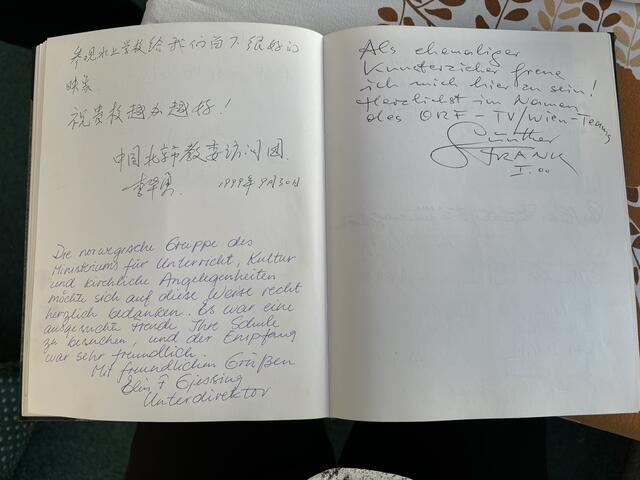 参观水上学校给我们留下很好的
映象。
祝贵校越办越好！
中国北京市教委访问团.
李华 1999年9月30日
Die norwegische Gruppe des
Ministeriums für Unterricht, Kultur
und kirchliche Angelegenheiten
möchte sich auf diese Weise recht
herzlich bedanken. Es war eine
ausgesuchte Freude, Ihre Schule
zu besuchen, und der Empfang
war sehr freundlich.
Mit freundlichen Grüßen
Elin F Gjessing
Unterdirektor
Als ehemaliger
Kunsterzieher freue
ich mich hier zu sein!
Herzlichst im Namen
des ORF-TV/Wien-Teams
Günther
FRANK
I.00